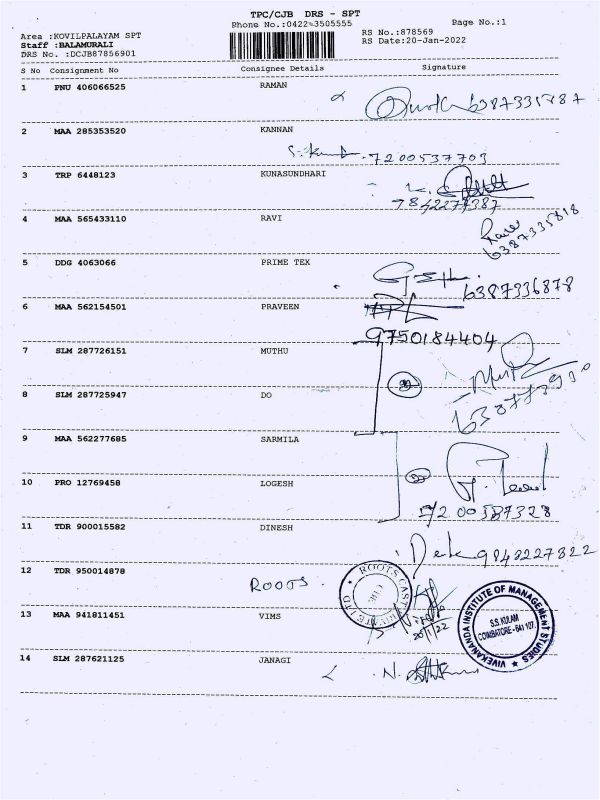 TPC/CJB DRS - SPT
Phone No.:0422-3505555
Page No.:1
Area :KOVILPALAYAM SPT
Staff :BALAMURALI
DRS No. :DCJB87856901
RS No.:878569
RS Date:20-Jan-2022
S No Consignment No Consignee Details Signature
1 PNU 406066525 RAMAN
2 MAA 285353520 KANNAN
7200537703
3 TRP 6448123 KUNASUNDHARI
7842277387
4 MAA 565433110 RAVI
6387335818
5 DDG 4063066 PRIME TEX
6387336878
6 MAA 562154501 PRAVEEN
9750184404
7 SLM 287726151 MUTHU
8 SLM 287725947 DO
9 MAA 562277685 SARMILA
10 PRO 12769458 LOGESH
7200587328
11 TDR 900015582 DINESH
9843227322
12 TDR 950014878 ROOTS
ROOTS CAST PRIVATE LTD
CBE
13 MAA 941811451 VIMS
20/1/22
VIVEKANANDA INSTITUTE OF MANAGEMENT STUDIES
S.S. KULAM
COIMBATORE - 641 107.
14 SLM 287621125 JANAGI